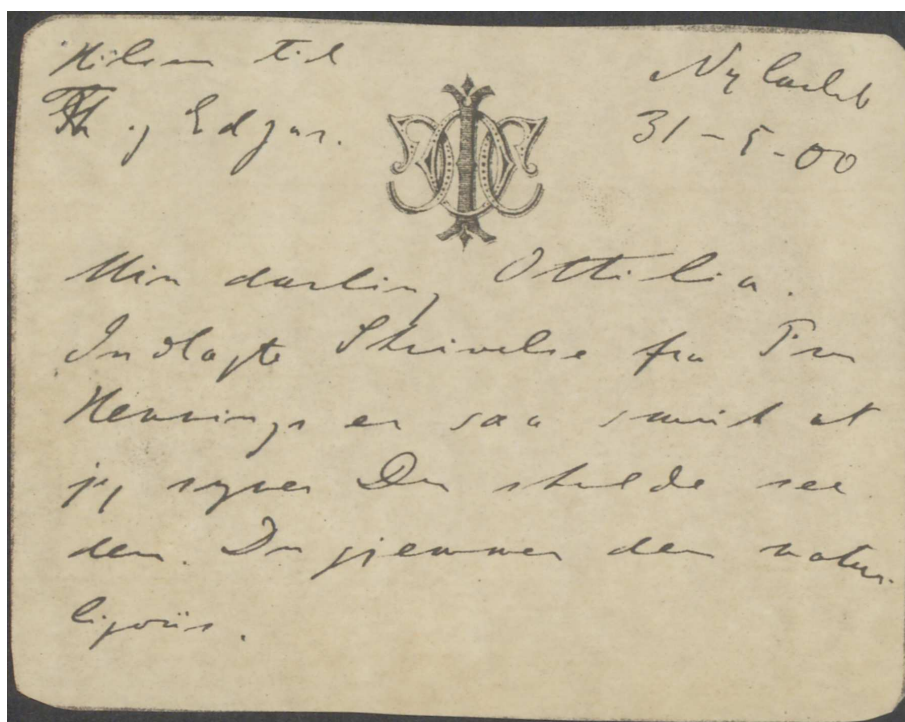 Hilsen til
Th og Edgar.
Ny Carlsb
31-5-00
Min darling Ottilia.
Indlagte Skrivelse fra Fru
Hennings er saa smuk at
jeg synes Du skulde see
den. Du gjemmer den natur-
ligviis.